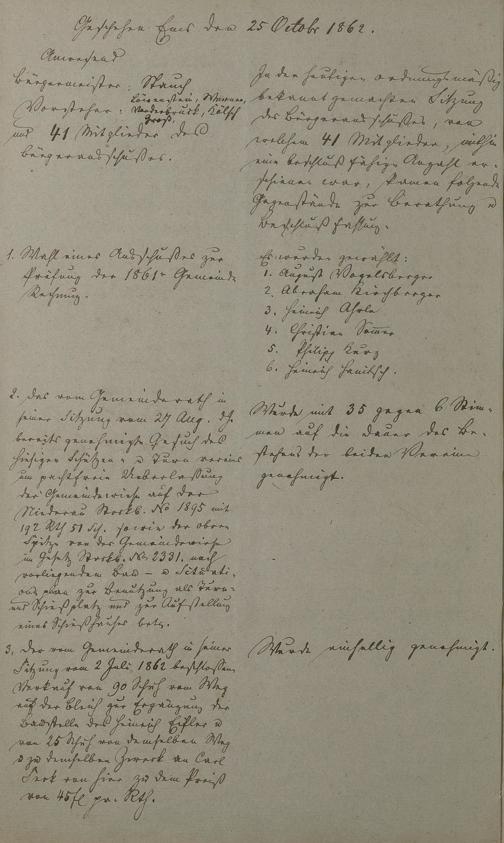 Geschehen Ems den 25 Octobr 1862.
Anwesend
Bürgermeister: Stauch
Vorsteher: Löwenstein, Werner,
Vanderbruck,
und 41 Mitglieder des
Bürgerausschußes.
In der heutigen ordnungsmäßig
bekannt gemachten Sitzung
des Bürgerausschußes, von
welchem 41 Mitglieder, mithin
eine beschlußfähige Anzahl er-
schienen war, kamen folgende
Gegenstände zur Berathung u
Beschlußfassung.
1. Wahl eines Ausschußes zur
Prüfung der 1861r Gemeinde
Rechnung.
Es wurden gewählt:
1. August Vogelsberger
2. Abraham Kirchberger
3. Heinrich Ahrle
4. Christian Sommer
5. Philipp Kurz
6. Heinrich Hanitsch.
2. Das vom Gemeinderath in
seiner Sitzung vom 27 Aug. d.J.
bereits genehmigte Gesuch des
hiesigen Schützen- u Turn vereins
um pachtfreie Ueberlassung
der Gemeindewiese auf der
Niederau Stockb. No 1895 mit
192 Rth 51 Sch. sowie der obern
Spitze von der Gemeindewiese
im Gesetz Stockb. No 2331. nach
vorliegendem Bau- u Situati-
onsplan zur Benutzung als Turn-
und Schießplatz und zur Aufstellung
eines Schießhauses betr.
Wurde mit 35 gegen 6 Stim-
men auf die Dauer des Be-
stehens der beiden Vereine
genehmigt.
3. Der vom Gemeinderath in seiner
Sitzung vom 2 Juli 1862 beschlossene
Verkauf von 90 Schuh vom Weg
auf der Bleich zur Ergänzung der
Baustelle des Heinrich Eifler u
von 25 Schuh von demselben Weg
zu demselben Zweck an Carl
von hier zu dem Preiß
von 45 fl pr. Rth.
Wurde einhellig genehmigt.